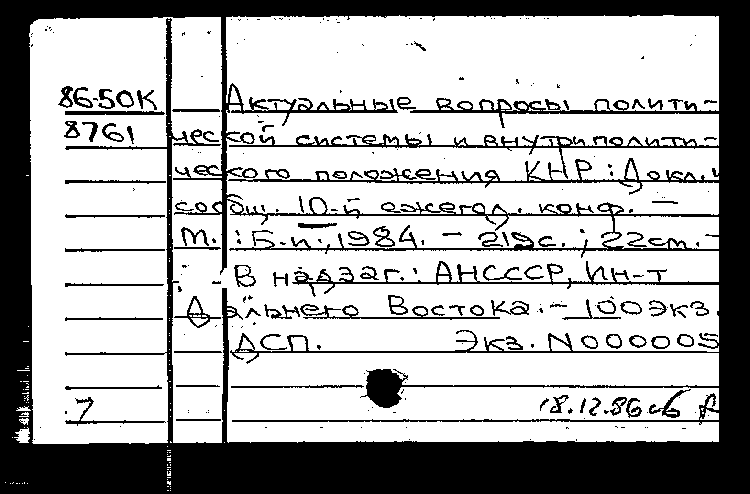 86-50К Актуальные вопросы полити-
8761 ческой системы и внутриполити-
ческого положения КНР: Докл. и
сообщ. 10-й ежегод. конф. —
М.: Б.и., 1984. — 219с.; 22см. -
В надзаг.: АНСССР, Ин-т
Дальнего Востока. — 100экз.
ДСП. Экз. N000005
7 18.12.86